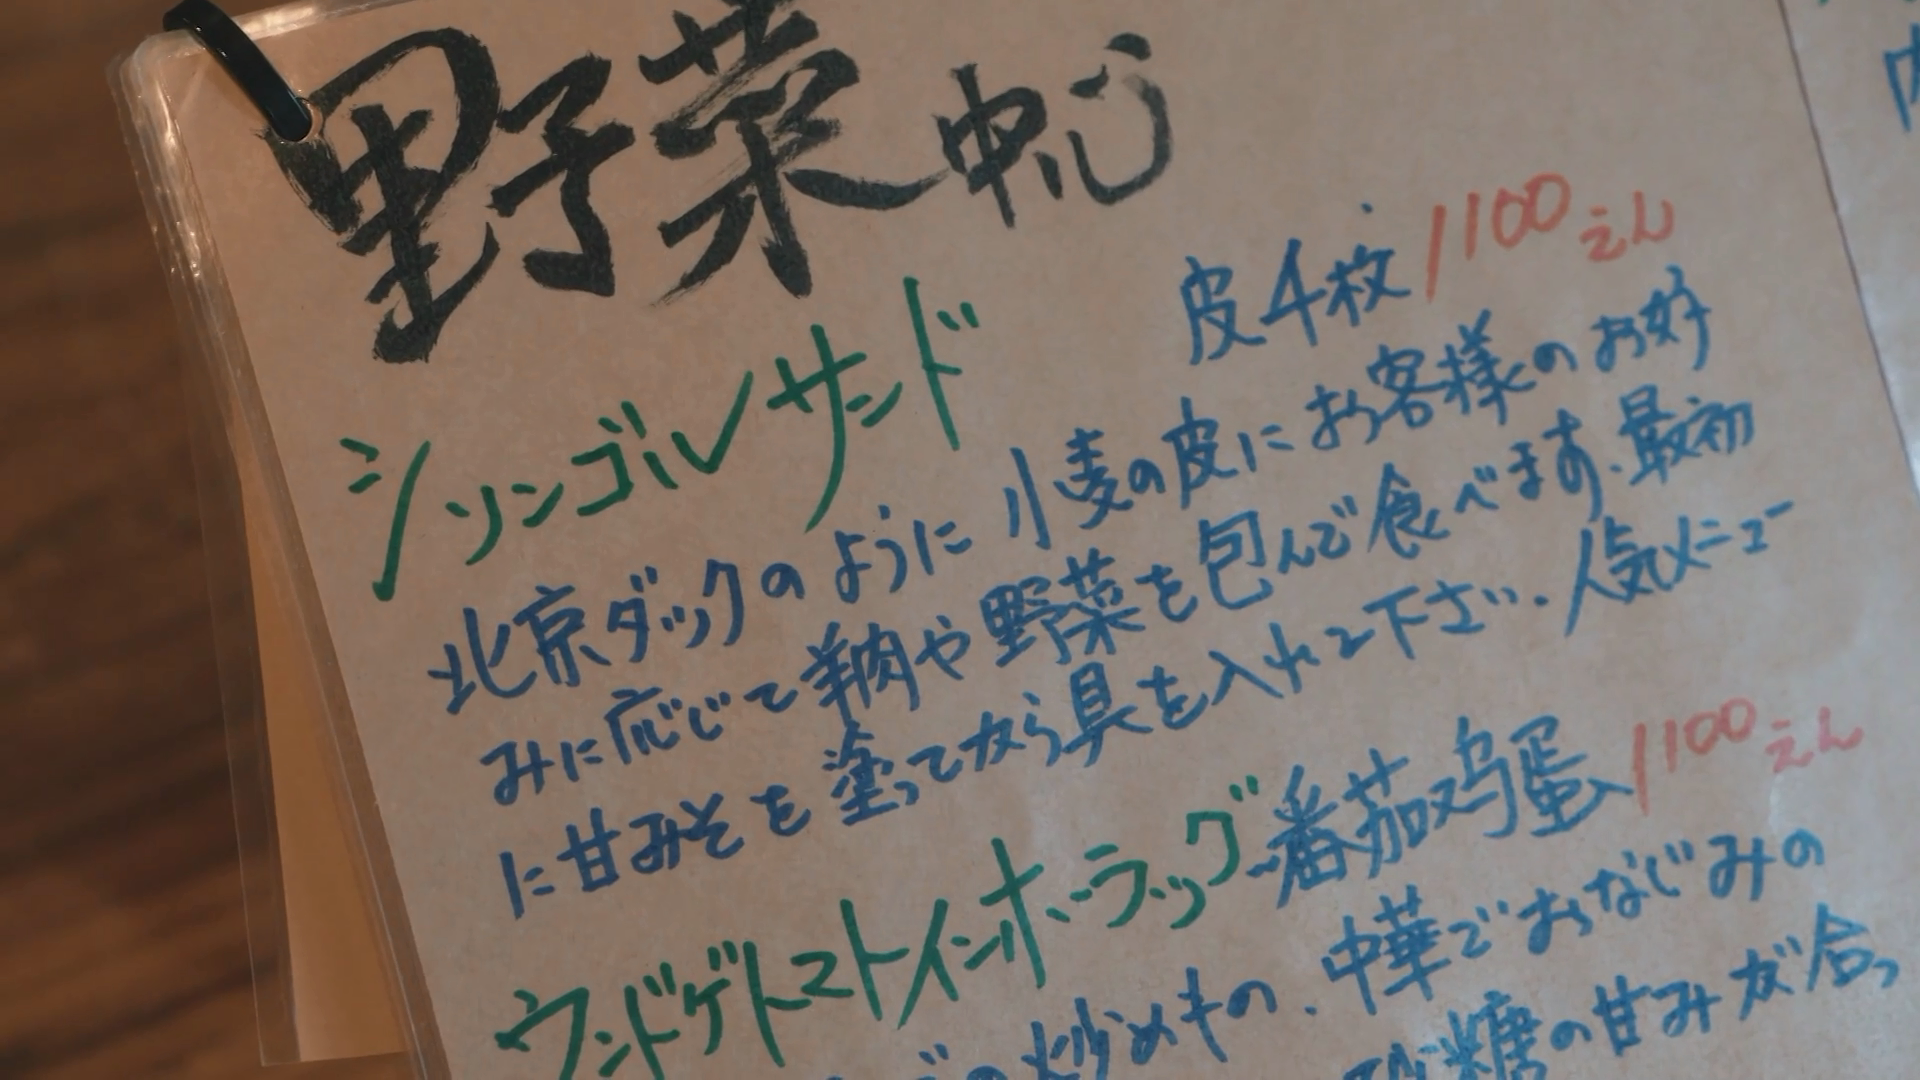 野菜中心
シンゴルサンド 皮4枚 1100えん
北京ダックのように小麦の皮にお客様のお好
みに応じて羊肉や野菜を包んで食べます.最初
に甘みそを塗ってから具を入れて下さい.人気メニュー
ウンドゲトマトインホーラッグ 番茄鸡蛋 1100えん
の炒めもの、中華でおなじみの
砂糖の甘みが合っ
内